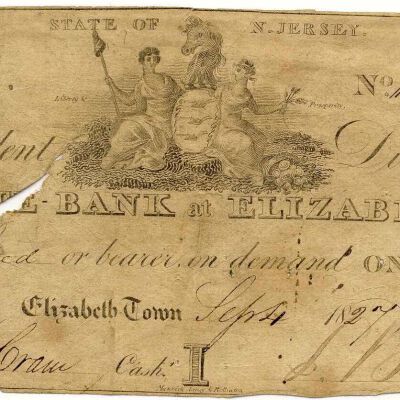 STATE OF N. JERSEY.
No.
Liberty & Prosperity.
dent Di
TE-BANK at ELIZAB
ed or bearer, on demand ON
Elizabeth Town Sept 4 1827
Crane Cash.r I